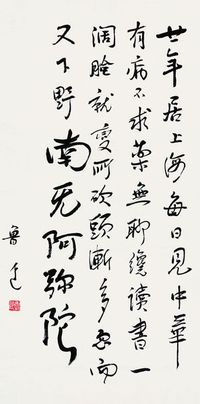 廿年居上海每日見中華
有病不求藥無聊纔讀書一
闊臉就變所砍頭漸多忽而
又下野南无阿弥陀
魯迅